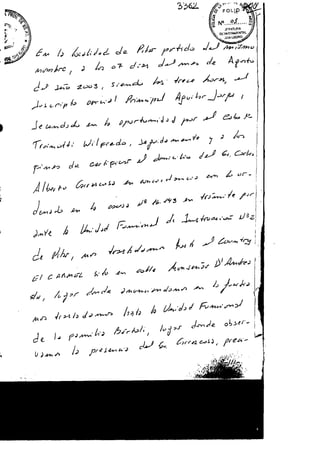 3562
FOLIO
Nº 08
En la localidad de Pilar partido del mismo
nombre, a los 07 dias del mes de Agosto
del año 2003, siendo las trece horas, el
suscripto oficial Principal Aguilar Jorge,
secundado en la oportunidad por el Cabo
Wilfredo, seguidamente y a los
fines de certificar el domicilio del Sr. Carlos
Alberto Carrascosa en concordancia con lo or-
denado en la causa Nº en trámite por
ante la Unidad Funcional de Instruccion Nº2
de Pilar, nos trasladamos hasta el Country
El CARMEL sito en calle Monseñor D'Andrea
s/n, lugar donde anunciandonos en la guardia
nos trasladamos hasta la Unidad Funcional
de la familia Bártoli, lugar donde obser-
vamos la presencia del Sr. Carrascosa, previ-